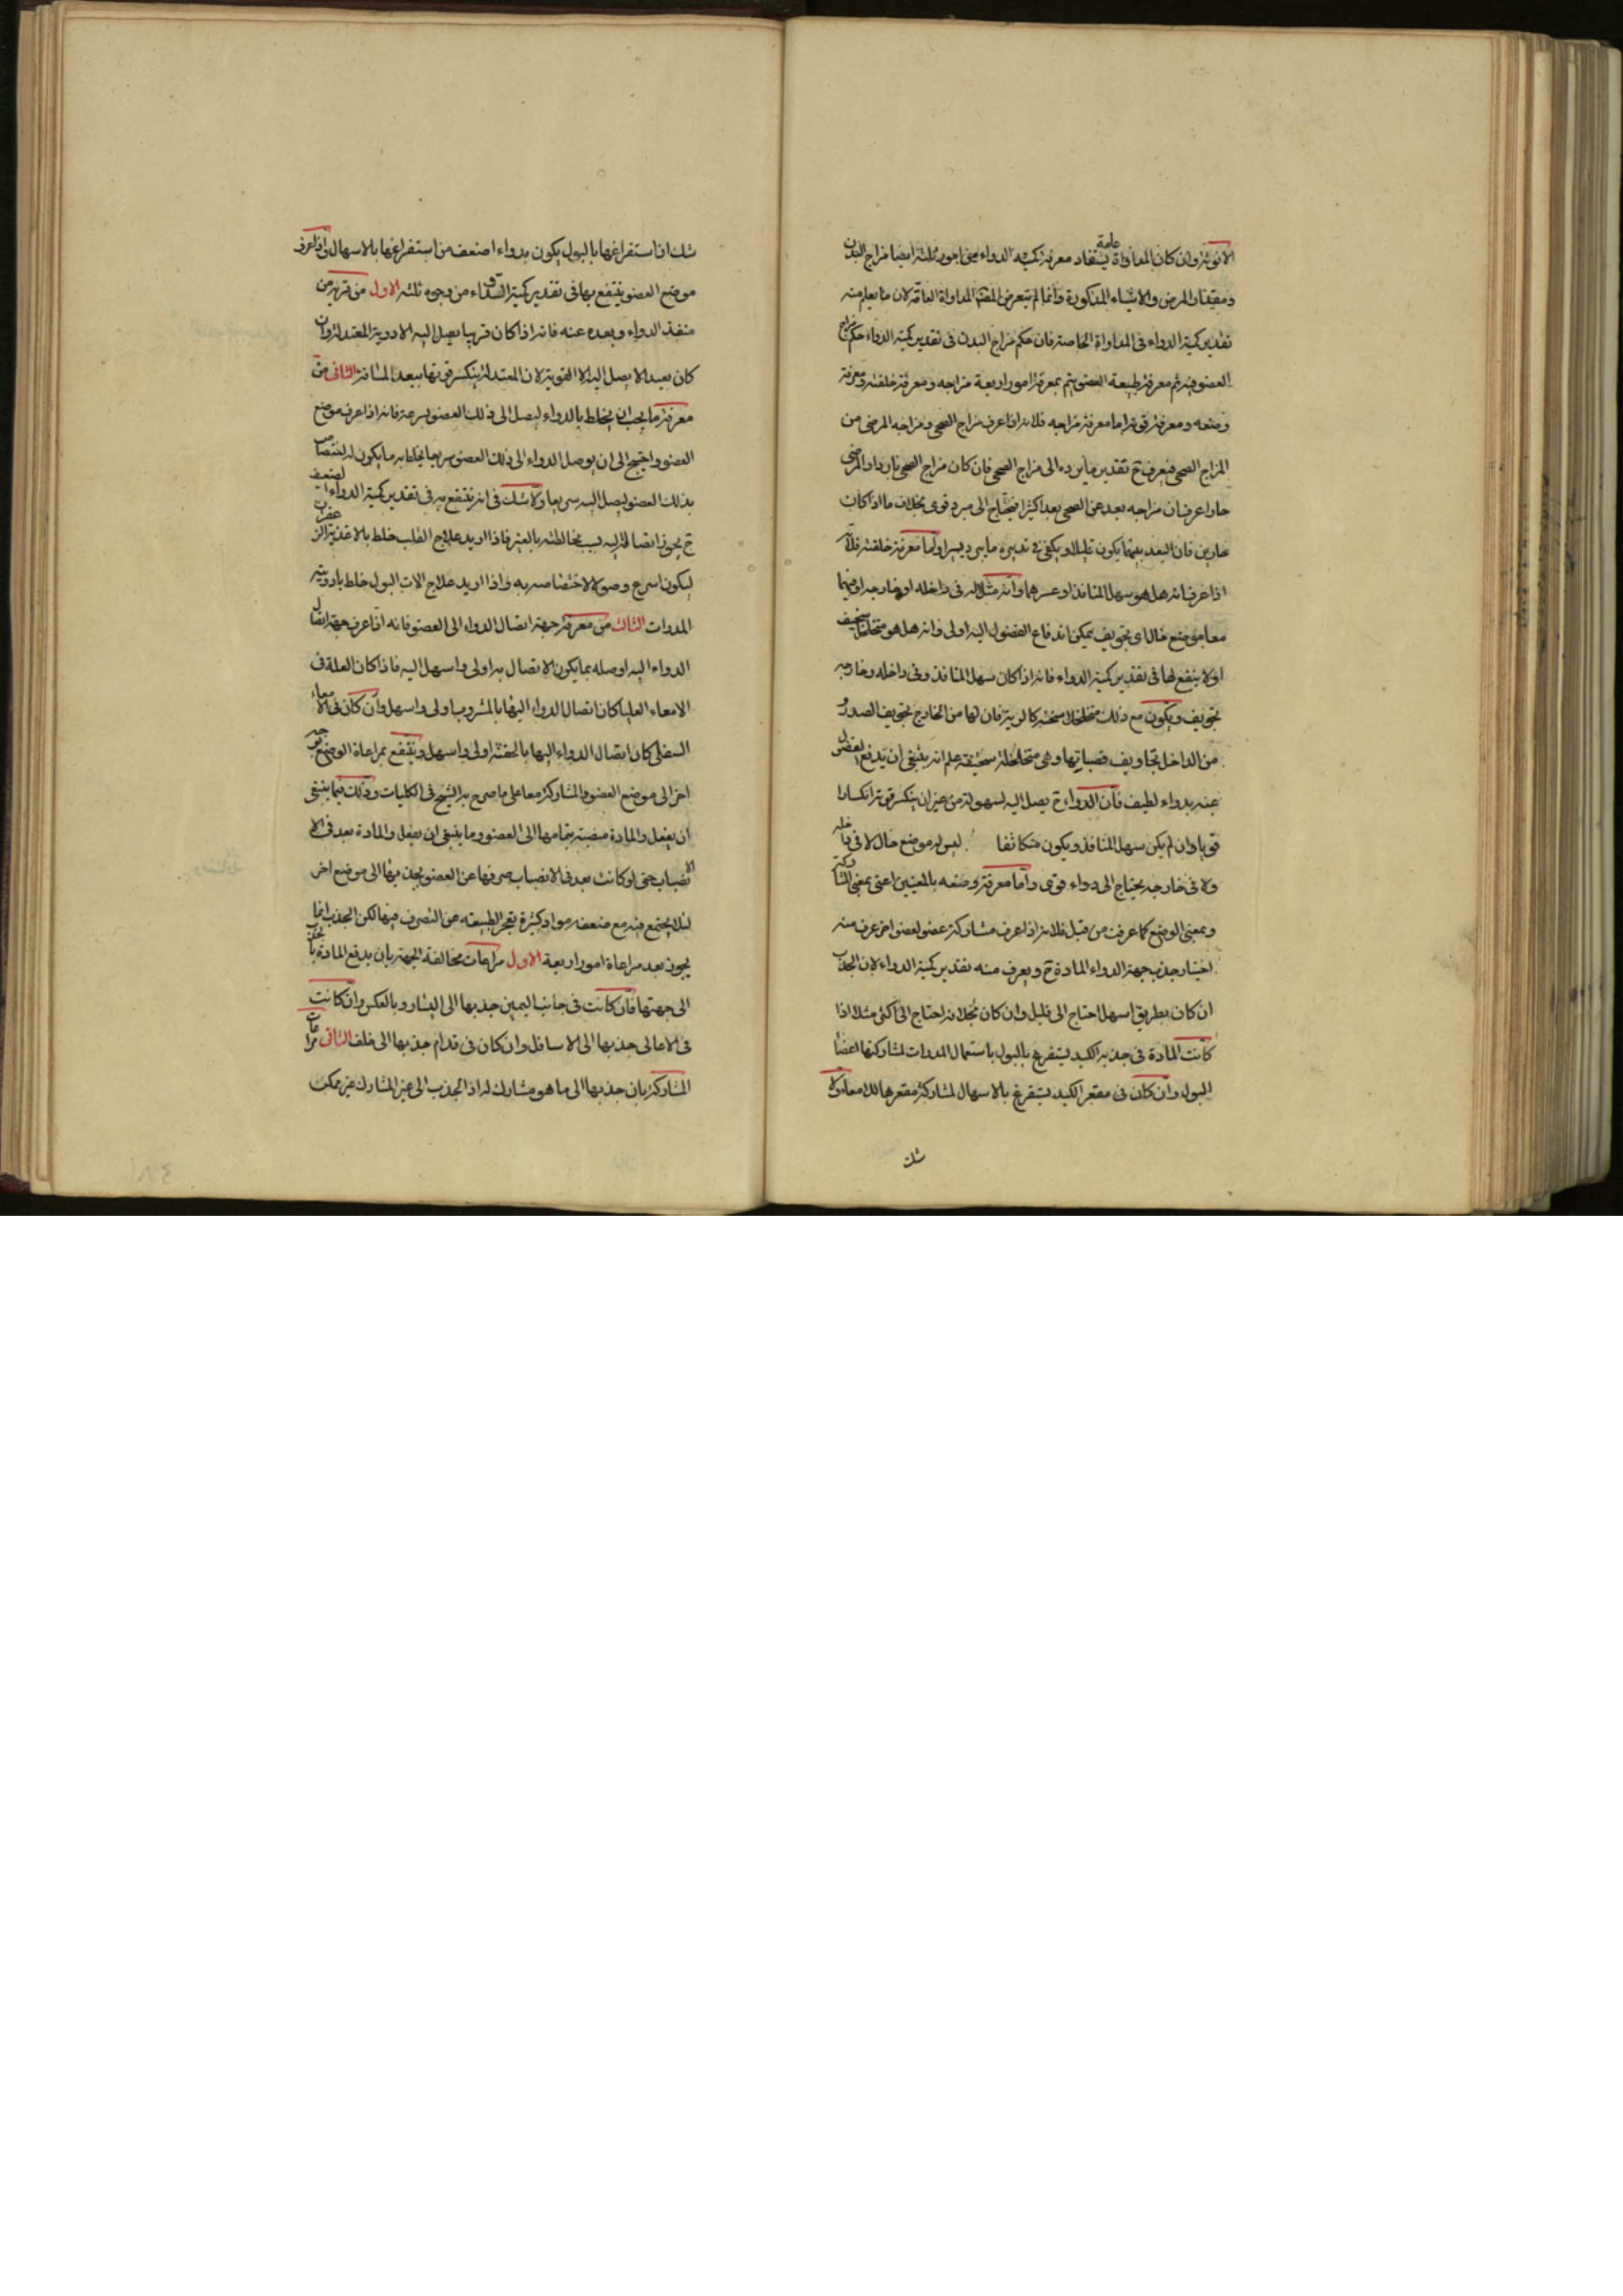 الانوثة وان كان المداواة عامة يستفاد معرفة تركيب الدواء من امور ثلثة ايضا مزاج البدن
ومقدار المرض والاشياء المذكورة وانما لم يتعرض المداواة العامة لان ما يعلم منه
تقدير كمية الدواء فى المداواة الخاصة فان حكم مزاج البدن فى تقدير كمية الدواء حكم مزاج
العضو فيه ثم معرفة طبيعة العضو يتم بمعرفة امور اربعة مزاجه ومعرفة خلقته ومعرفة
وضعه ومعرفة قوته اما معرفة مزاجه فلانه اذا عرف مزاج الصحى ومزاجه المرضى من
المزاج الصحى فيعرف ح تقدير ما يرده الى مزاج الصحى فان كان مزاج الصحى باردا والمرضى
حارا عرف ان مزاجه بعد عن الصحى بعدا كثيرا فيحتاج الى مبرد قوى بخلاف ما اذا كان
حارين فان البعد بينهما يكون قليلا ويكفى فى تدبيره ما يبرد يسيرا واما معرفة خلقته فلانه
اذا عرف انه هل هو سهل المنافذ او عسرها وانه هل له فى داخله او خارجه او فيهما
معا موضع خال اى تجويف يمكن اندفاع الفضول اليه اولى وانه هل هو متخلخل سخيف
او لا ينتفع لها فى تقدير كمية الدواء فانه اذا كان سهل المنافذ وفى داخله وخارجه
تجويف ويكون مع ذلك متخلخلا سخيفة كالرية فان لها من الخارج تجويف الصدر و
من الداخل تجاويف قصباتها وهى متخلخلة سخيفة علم انه ينبغى ان يدفع الفضل
عنه بدواء لطيف فان الدواء ح يصل اليه لسهولة من غير ان ينكسر قوته انكسارا
قويا وان لم يكن سهل المنافذ ويكون متكاثفا ليس له موضع خال لا فى داخله
ولا فى خارجه يحتاج الى دواء قوى واما معرفة وضعه بالمعنيين اعنى بمعنى المشاركة
وبمعنى الوضع كما عرفت من قبل فلانه اذا عرف مشاركة عضو لعضو اخر عرف منه
اختيار جذب جهة الدواء المادة ح ويعرف منه تقدير كمية الدواء لان الجذب
ان كان بطريق اسهل احتاج الى قليل وان كان بخلافه احتاج الى اكثر مثلا اذا
كانت المادة فى حدبة الكبد يستفرغ بالبول باستعمال المدرات لمشاركتها اعضاء
البول وان كان فى مقعر الكبد يستفرغ بالاسهال لمشاركة مقعرها للامعاء ولا
شك
شك ان استفراغها بالبول يكون بدواء اضعف من استفراغها بالاسهال واذا عرف
موضع العضو ينتفع بها فى تقدير كمية الدواء من وجوه ثلثه الاول من قربه من
منفذ الدواء وبعده عنه فانه اذا كان قريبا يصل اليه الادوية المعتدلة وان
كان بعيد لا يصل اليه الا القوية لان المعتدلة ينكسر قوتها ببعد المسافة الثانى من
معرفة ما يجب ان يخلط بالدواء ليصل الى ذلك العضو بسرعة فانه اذا عرف موضع
العضو واحتيج الى ان يوصل الدواء الى ذلك العضو سريعا يخلط به ما يكون له اختصاص
بذلك العضو ليصل اليه سريعا ولا شك فى انه ينتفع به فى تقدير كمية الدواء لضعف
ح يجوز اتصاله اليه بسبب مخالطته بالغير فاذا اريد علاج القلب خلط بالاغذية الزعفران
ليكون اسرع وصولا لاختصاصه به واذا اريد علاج الات البول خلط بادويته
المدرات الثالث من معرفة جهة ايصال الدواء الى العضو فانه اذا عرف جهة ايصال
الدواء اليه اوصله بما يكون الايصال به اولى واسهل اليه فاذا كان العلة فى
الامعاء العليا كان ايصال الدواء اليها بالمشروب اولى واسهل وان كان فى الامعاء
السفلى كان ايصال الدواء اليها بالحقنة اولى واسهل وينتفع بمراعاة الوضع بوجه
اخر الى موضع العضو والمشاركة معا على ما صرح به الشيخ فى الكليات وذلك فيما ينبغى
ان يفعل والمادة منصبة بتمامها الى العضو وما ينبغى ان يفعل والمادة بعد فى الا
الانصباب حتى لو كانت بعد فى الانصباب صرفها عن العضو بجذبها الى موضع اخر
لئلا يجتمع فيه مع ضعفه مواد كثيرة يعجز الطبيعة عن التصرف فيها لكن الجذب انما
يجوز بعد مراعاة امور اربعة الاول مراعات مخالفة الجهة بان يدفع المادة بالجذب
الى جهتها فان كانت فى جانب اليمين جذبها الى اليسار وبالعكس وان كانت
فى الاعالى جذبها الى الاسافل وان كان فى قدام جذبها الى خلف الثانى مراعات
المشاركة بان جذبها الى ما هو مشارك له اذ الجذب الى غير المشارك غير ممكن